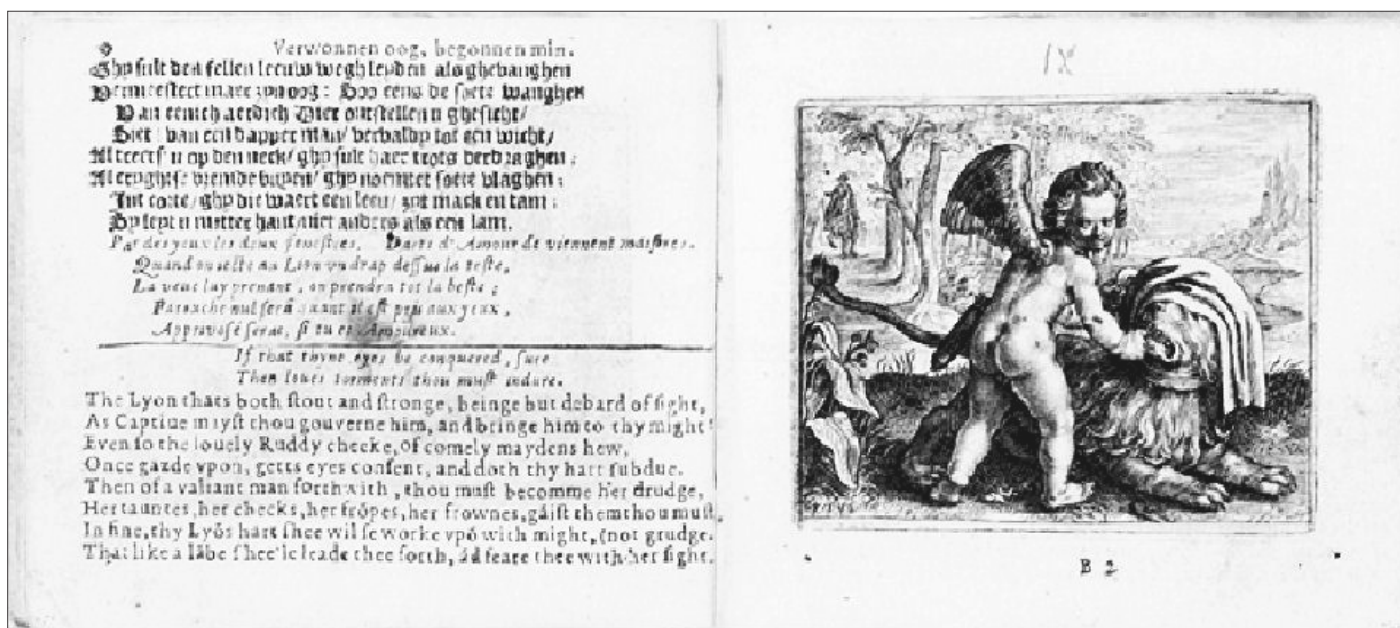 Verwonnen oog, begonnen min.
Ghy sult den fellen leeuw wegh leyden als ghevanghen
maer zyn oog: Soo eens de soete wanghen
Van eenich aerdich Dier ontstellen u ghesicht/
Siet! van een dapper man/ vervaldy tot een wicht/
Al treets' u op den neck/ ghy sult haer trots verdraghen:
Al vremde buyen/ ghy noemtet soete vlaghen:
Int corte/ghy die waert een leeu/ zyt mack en tam:
Sy leyt u metter hant niet anders als een lam.
Par des yeux les deux fenestres, Dards d'Amour de viennent maistres.
Quand on jette au Lion un drap dessus la teste,
La veue luy prenant, on prendra tot la beste;
nul sera avant il est pris aux yeux,
Apprivoisé seras, si tu es Amoureux.
If that thyne eyes be conquered, sure
Then loues torments thou must indure.
The Lyon thats both stout and stronge, beinge but debard of sight,
As Captiue mayst thou gouverne him, and bringe him to thy might!
Even so the louely Ruddy cheeke, of comely maydens hew,
Once gazde vpon, getts eyes consent, and doth thy hart subdue.
Then of a valiant man forthwith, thou must becomme her drudge,
Her tauntes, her checks, her frôpes, her frownes, gáist them thou must,
In fine, thy Lyôs hart shee wil se worke vpô with might, (not grudge.
That like a lâbe shee'le leade thee forth, ád feare thee with her sight.
IX
B 2